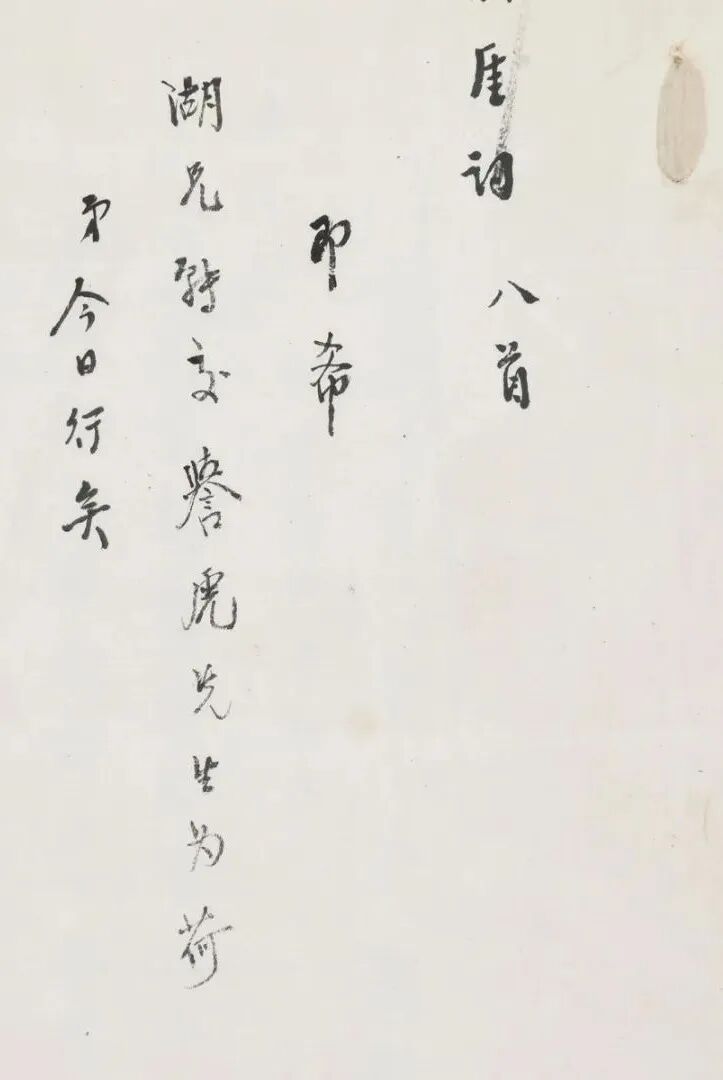 厓词 八首
即希
湖兄转交誉虎先生为荷
弟今日行矣